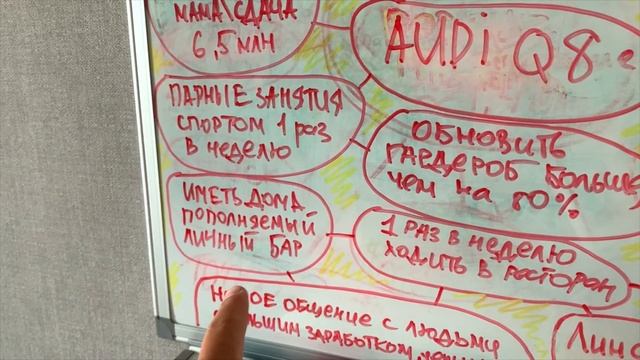 МАМА\СДАЧА
6,5 МЛН
AUDI Q8
ПАРНЫЕ ЗАНЯТИЯ
СПОРТОМ 1 РАЗ
В НЕДЕЛЮ
ОБНОВИТЬ
ГАРДЕРОБ БОЛЬШЕ,
ЧЕМ НА 80%
ИМЕТЬ ДОМА
ПОПОЛНЯЕМЫЙ
ЛИЧНЫЙ БАР
1 РАЗ В НЕДЕЛЮ
ХОДИТЬ В РЕСТОРАН
ОБЩЕНИЕ С ЛЮДЬМИ
ЗАРАБОТКОМ